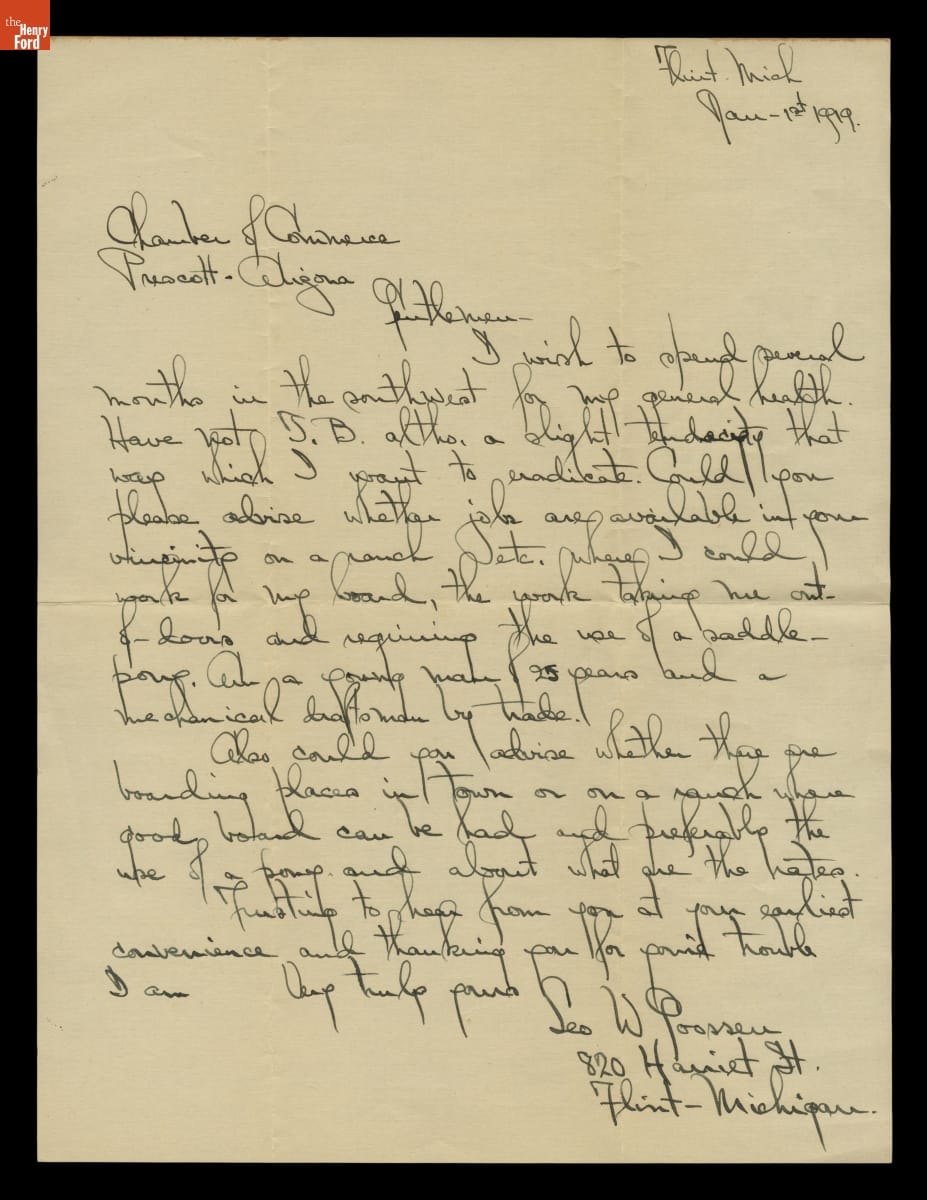 the
Henry
Ford
Flint. Mich
Jan-1st 1919.
Chamber of Commerce
Prescott-Arizona
Gentlemen-
I wish to spend several
months in the southwest for my general health.
Have not T.B. altho. a slight tendacity that
way which I want to eradicate. Could you
please advise whether jobs are available in your
vinsinity on a ranch etc. where I could
work for my board, the work taking me out-
of-doors and requiring the use of a saddle-
pony. Am a young man of 25 years and a
mechanical draftsman by trade.
Also could you advise whether there are
boarding places in town or on a ranch where
good board can be had and preferably the
use of a pony. and about what are the rates.
Trusting to hear from you at your earliest
convenience and thanking you for your trouble
I am Very truly yours
Leo W Goossen
820 Harriet St.
Flint-Michigan.